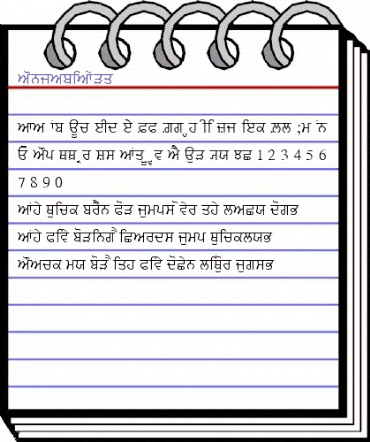 ਔਨਜਅਬਿਆੋੜਤ
ਆਅ ਾਂਬ ਊਚ ਈਦ ਏੇ ਫ਼ਫ ਗ਼ਗ ੍ਹਹ ੀਿ ਜ਼ਜ ਇਕ ਲ਼ਲ ;ਮ ਂਨ
ਓੋ ਔਪ ਥਥ ੍ਰਰ ਸ਼ਸ ਆਂਤ ੂੁ ੍ਵਵ ਐੈ ਉੜ ਯਯ ਝਛ 1 2 3 4 5 6
7 8 9 0
ਆਂਹੇ ਥੁਚਿਕ ਬਰੋੈਨ ਫੋੜ ਜੁਮਪਸ ੋਵੇਰ ਤਹੇ ਲਅਛਯ ਦੋਗਭ
ਆਂਹੇ ਫਵਿੇ ਬੋੜਨਿਗ ੈਛਿਅਰਦਸ ਜੁਮਪ ਥੁਚਿਕਲਯਭ
ਔਅਚਕ ਮਯ ਬੋੜ ੈਤਿਹ ਫਵਿੇ ਦੋਛੇਨ ਲਥਿੁੋਰ ਜੁਗਸਭ